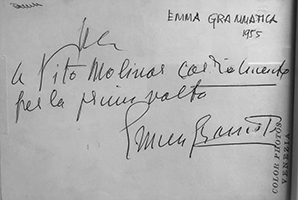 EMMA GRAMMATICA
1955
A Vito Molinari cordialmente
per la prima volta
Emma Gramatica
COLOR PHOTOS
VENEZIA